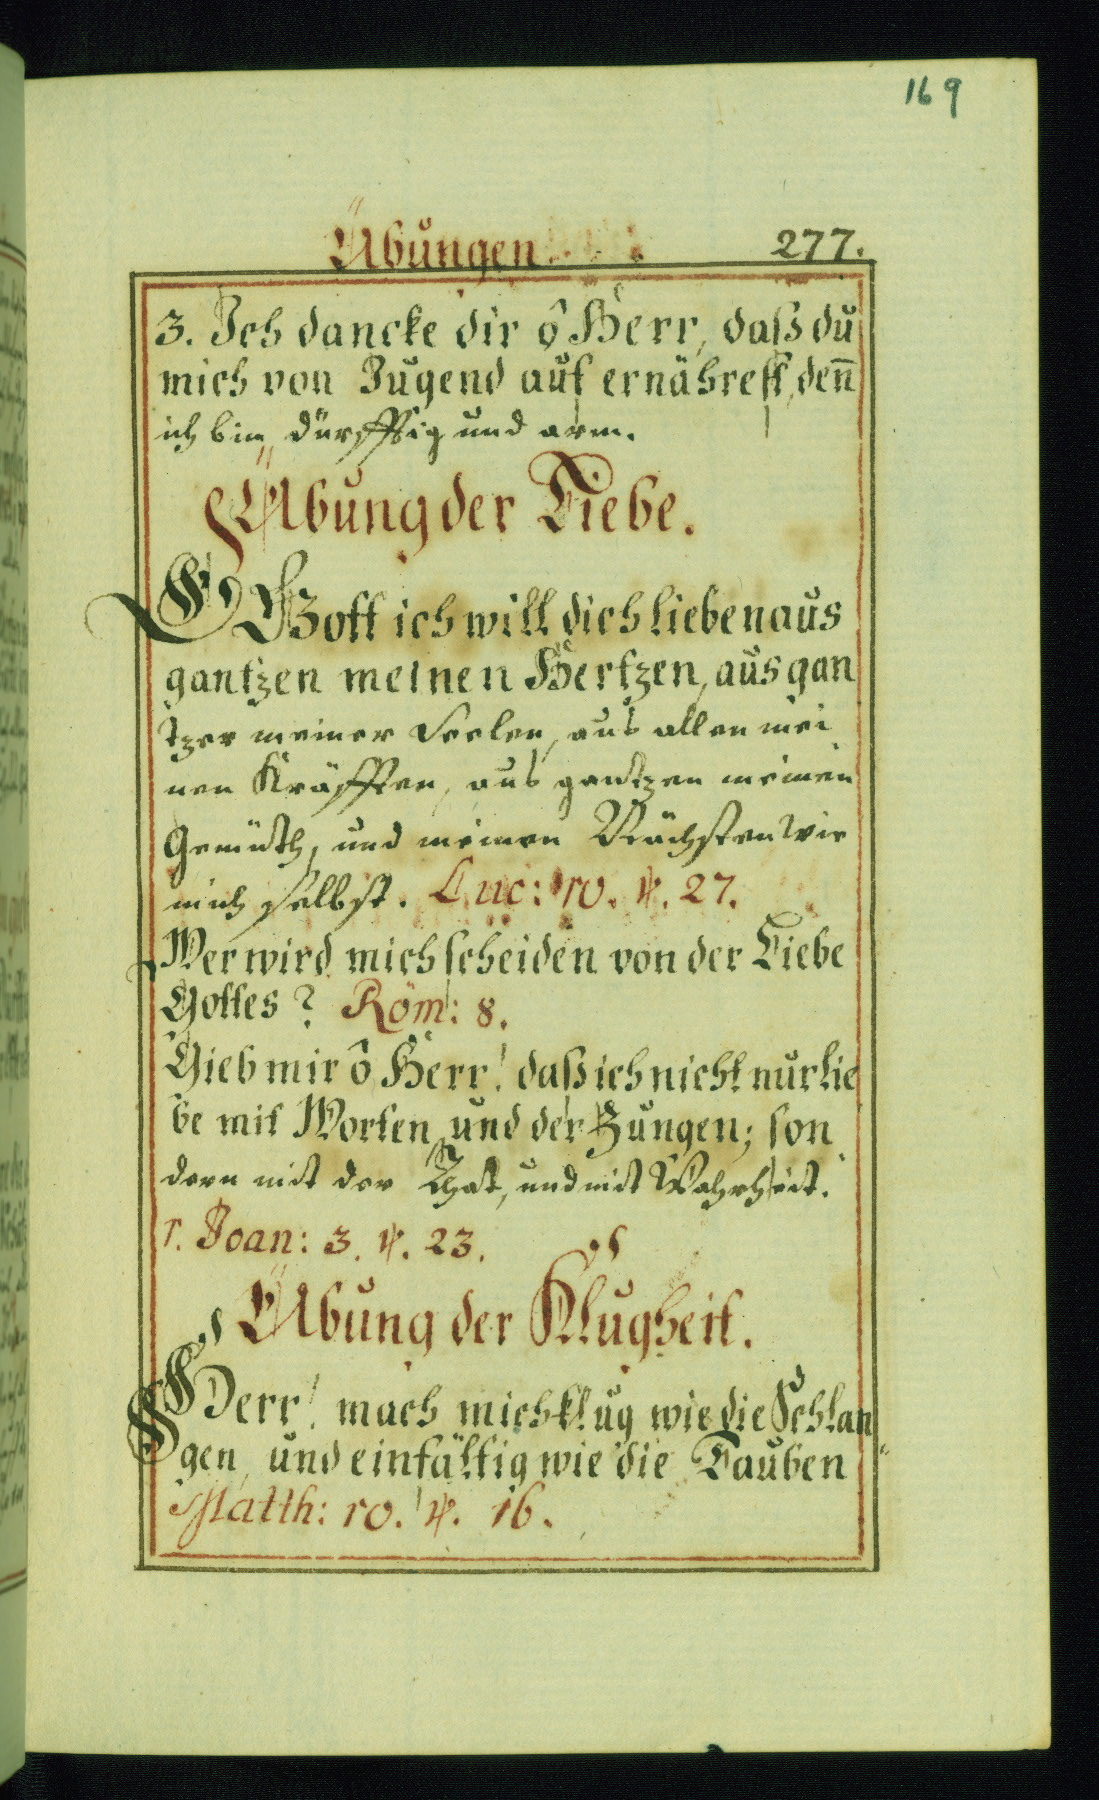 169
Übungen. 277.
3. Ich dancke dir ô Herr, daß du
mich von Jugend auf ernährest, den̅
ich bin dürfftig und arm.
Übung der Liebe.
O Gott ich will dich lieben aus
gantzen meinen Hertzen, aus gan
tzer meiner Seelen, aus allen mei
nen Kräfften, aus gantzen meinen
Gemüth, und meinen Nächsten wie
mich selbst. Luc: 10. ℣. 27.
Wer wird mich scheiden von der Liebe
Gottes? Röm: 8.
Gieb mir ô Herr! daß ich nicht nur lie
be mit Worten und der Zungen; son
dern mit der That, und mit Wahrheit.
1. Joan: 3. ℣. 23.
Übung der Klugheit.
Herr! mach mich klug wie die Schlan
gen, und einfältig wie die Tauben
Matth: 10. ℣. 16.